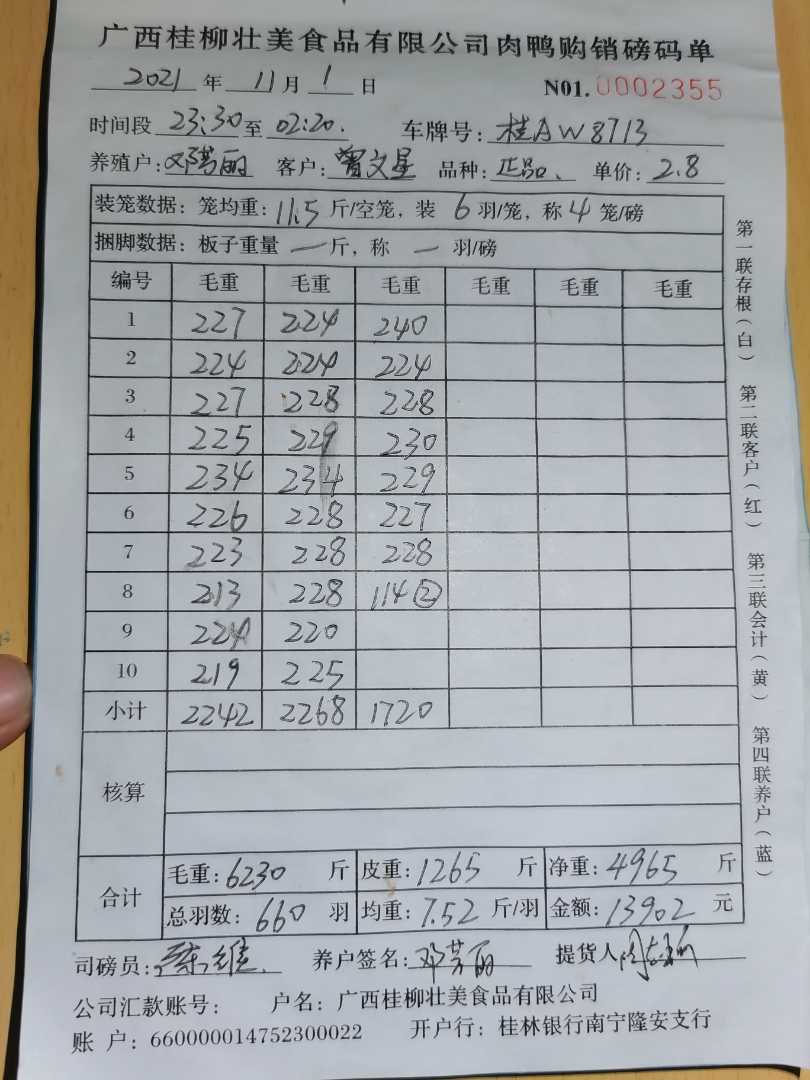 广西桂柳壮美食品有限公司肉鸭购销磅码单
2021 年 11 月 1 日 N01. 0002355
时间段 23:30 至 02:20. 车牌号: 桂AW8713
养殖户: 邓芳丽 客户: 曾文星 品种: 正品、 单价: 2.8
装笼数据: 笼均重: 11.5 斤/空笼, 装 6 羽/笼, 称 4 笼/磅
捆脚数据: 板子重量 一 斤, 称 一 羽/磅
编号 毛重 毛重 毛重 毛重 毛重 毛重
1 227 224 240
2 224 224 224
3 227 228 228
4 225 229 230
5 234 234 229
6 226 228 227
7 223 228 228
8 213 228 114②
9 224 220
10 219 225
小计 2242 2268 1720
核算
合计
毛重: 6230 斤 皮重: 1265 斤 净重: 4965 斤
总羽数: 660 羽 均重: 7.52 斤/羽 金额: 13902 元
司磅员: 养户签名: 邓芳丽 提货人
公司汇款账号: 户名: 广西桂柳壮美食品有限公司
账 户: 660000014752300022 开户行: 桂林银行南宁隆安支行
第一联存根(白)
第二联客户(红)
第三联会计(黄)
第四联养户(蓝)